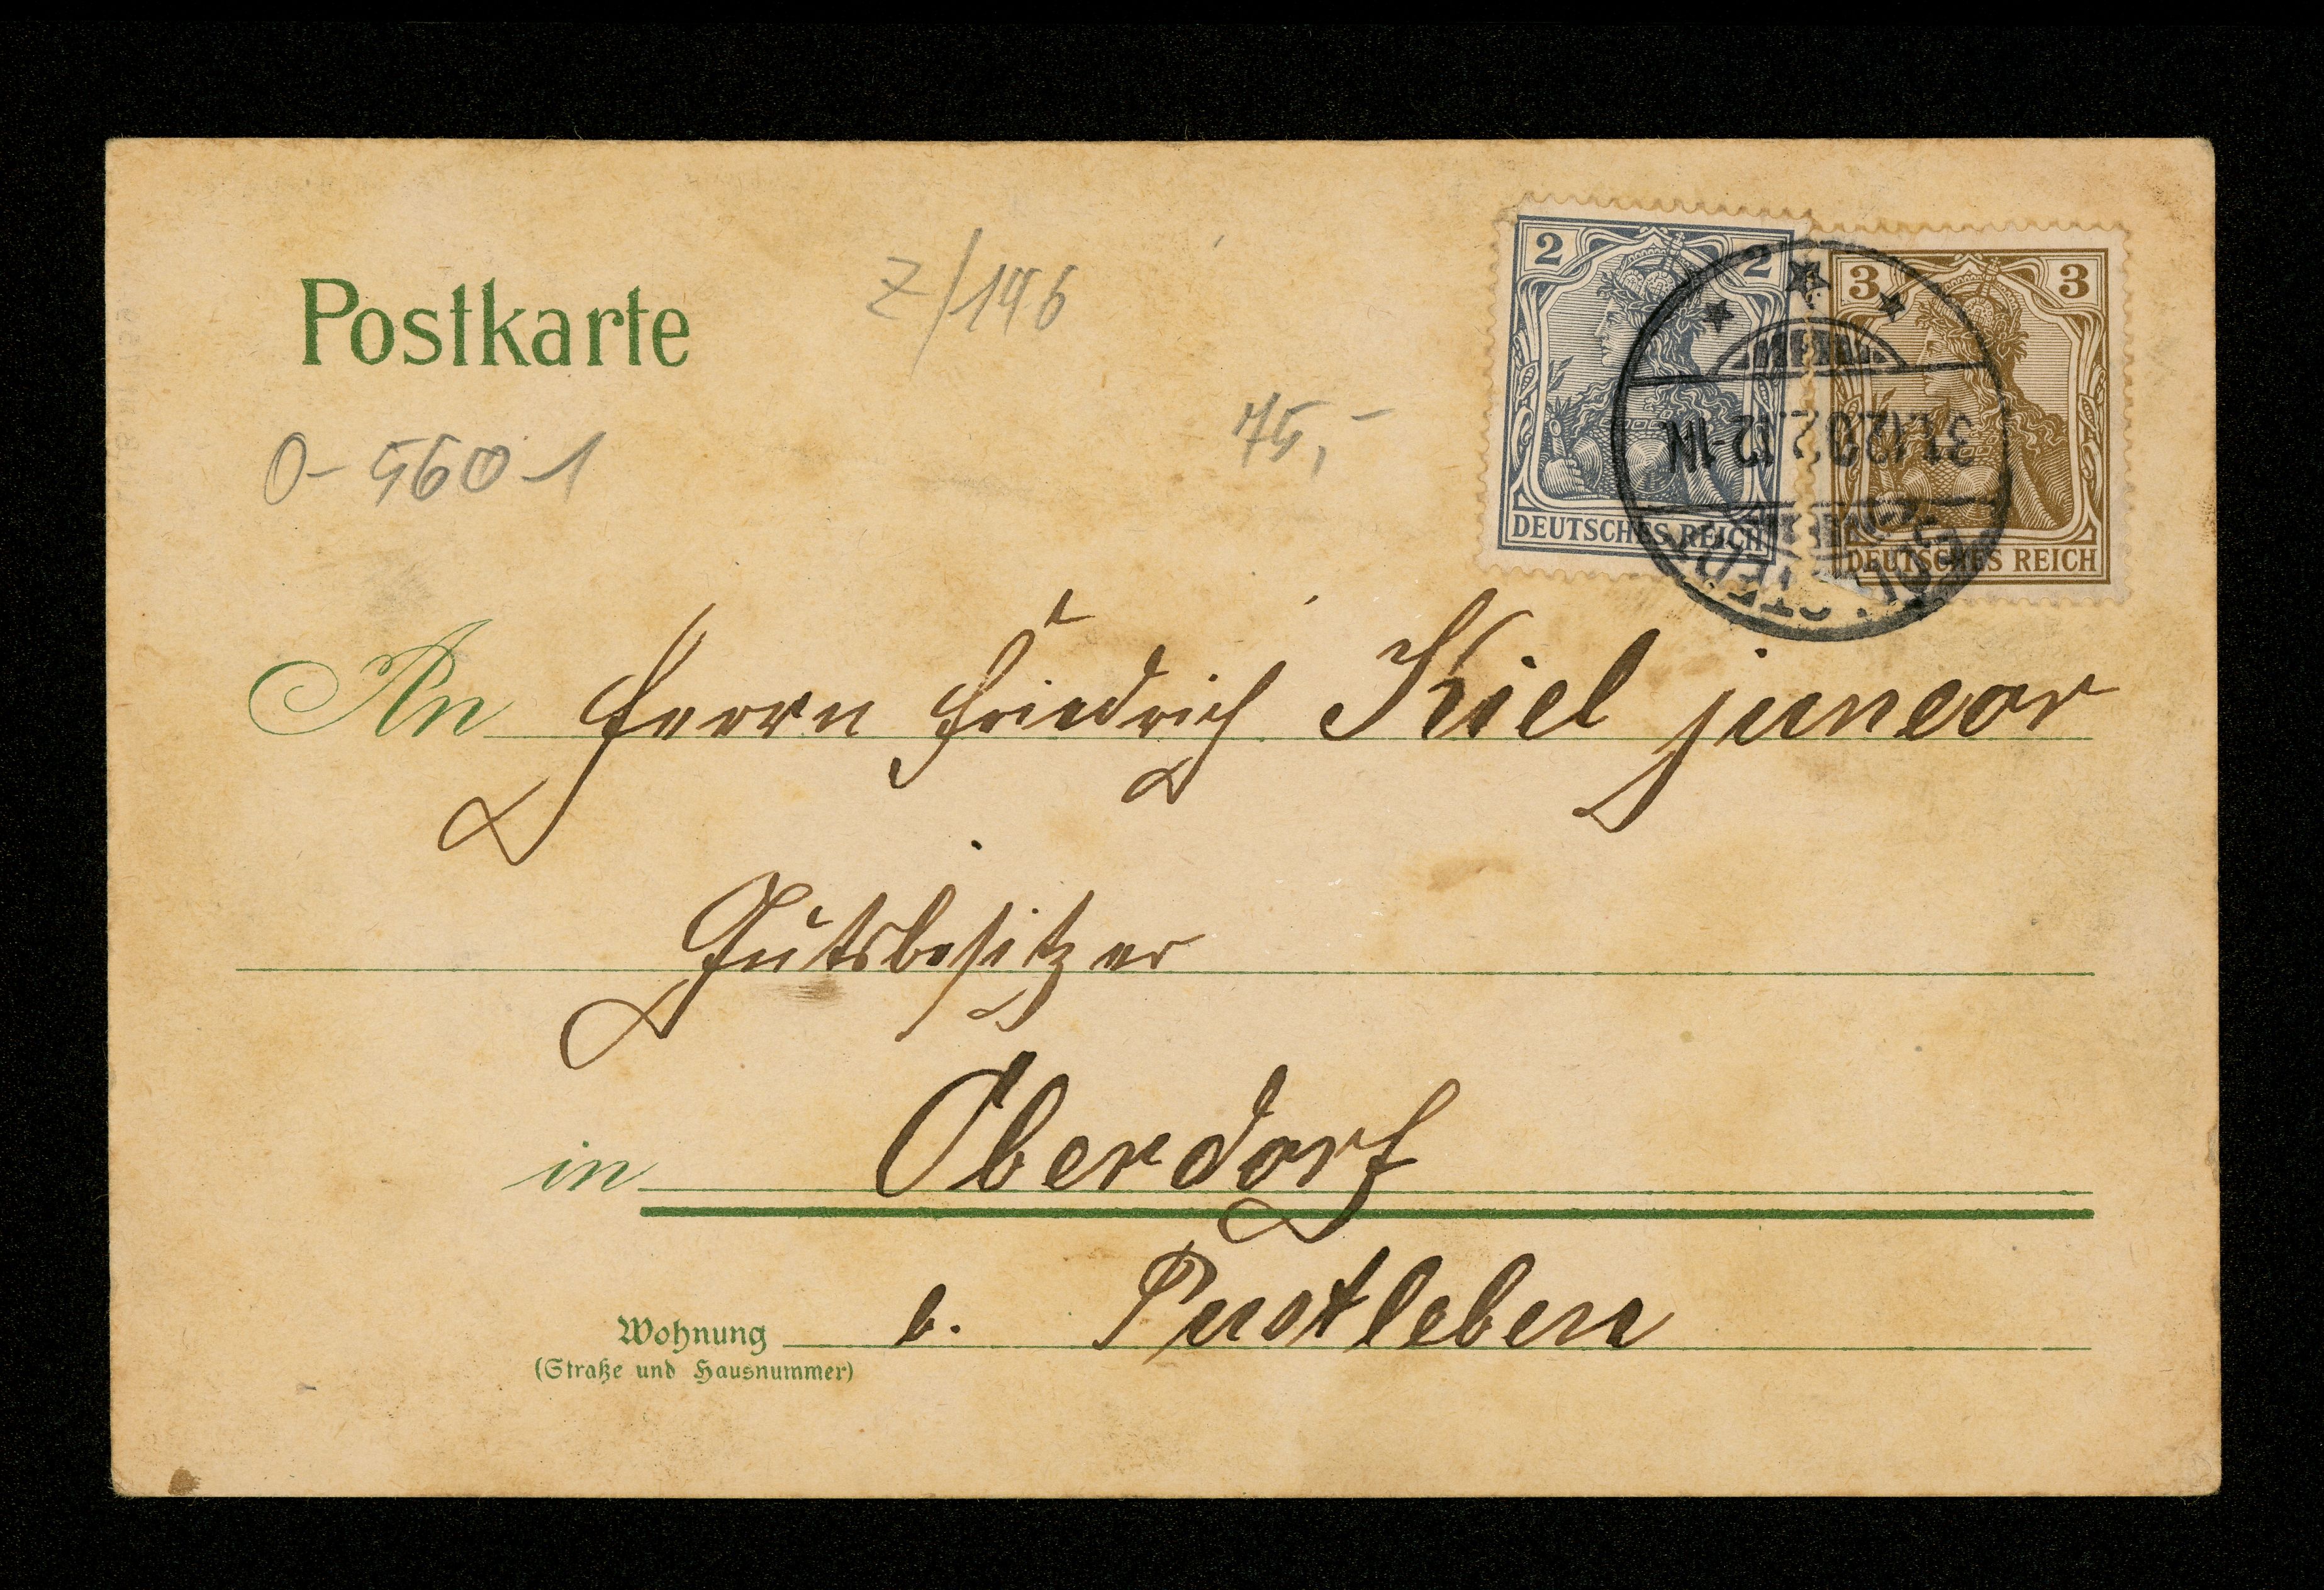 Postkarte
Z/146
O-5601
75,-
2 2
DEUTSCHES REICH
3 3
DEUTSCHES REICH
31.12.02. 12-1N.
An Herrn Friedrich Kiel juneor
Gutsbesitzer
in Oberdorf
Wohnung b. Pustleben
(Straße und Hausnummer)